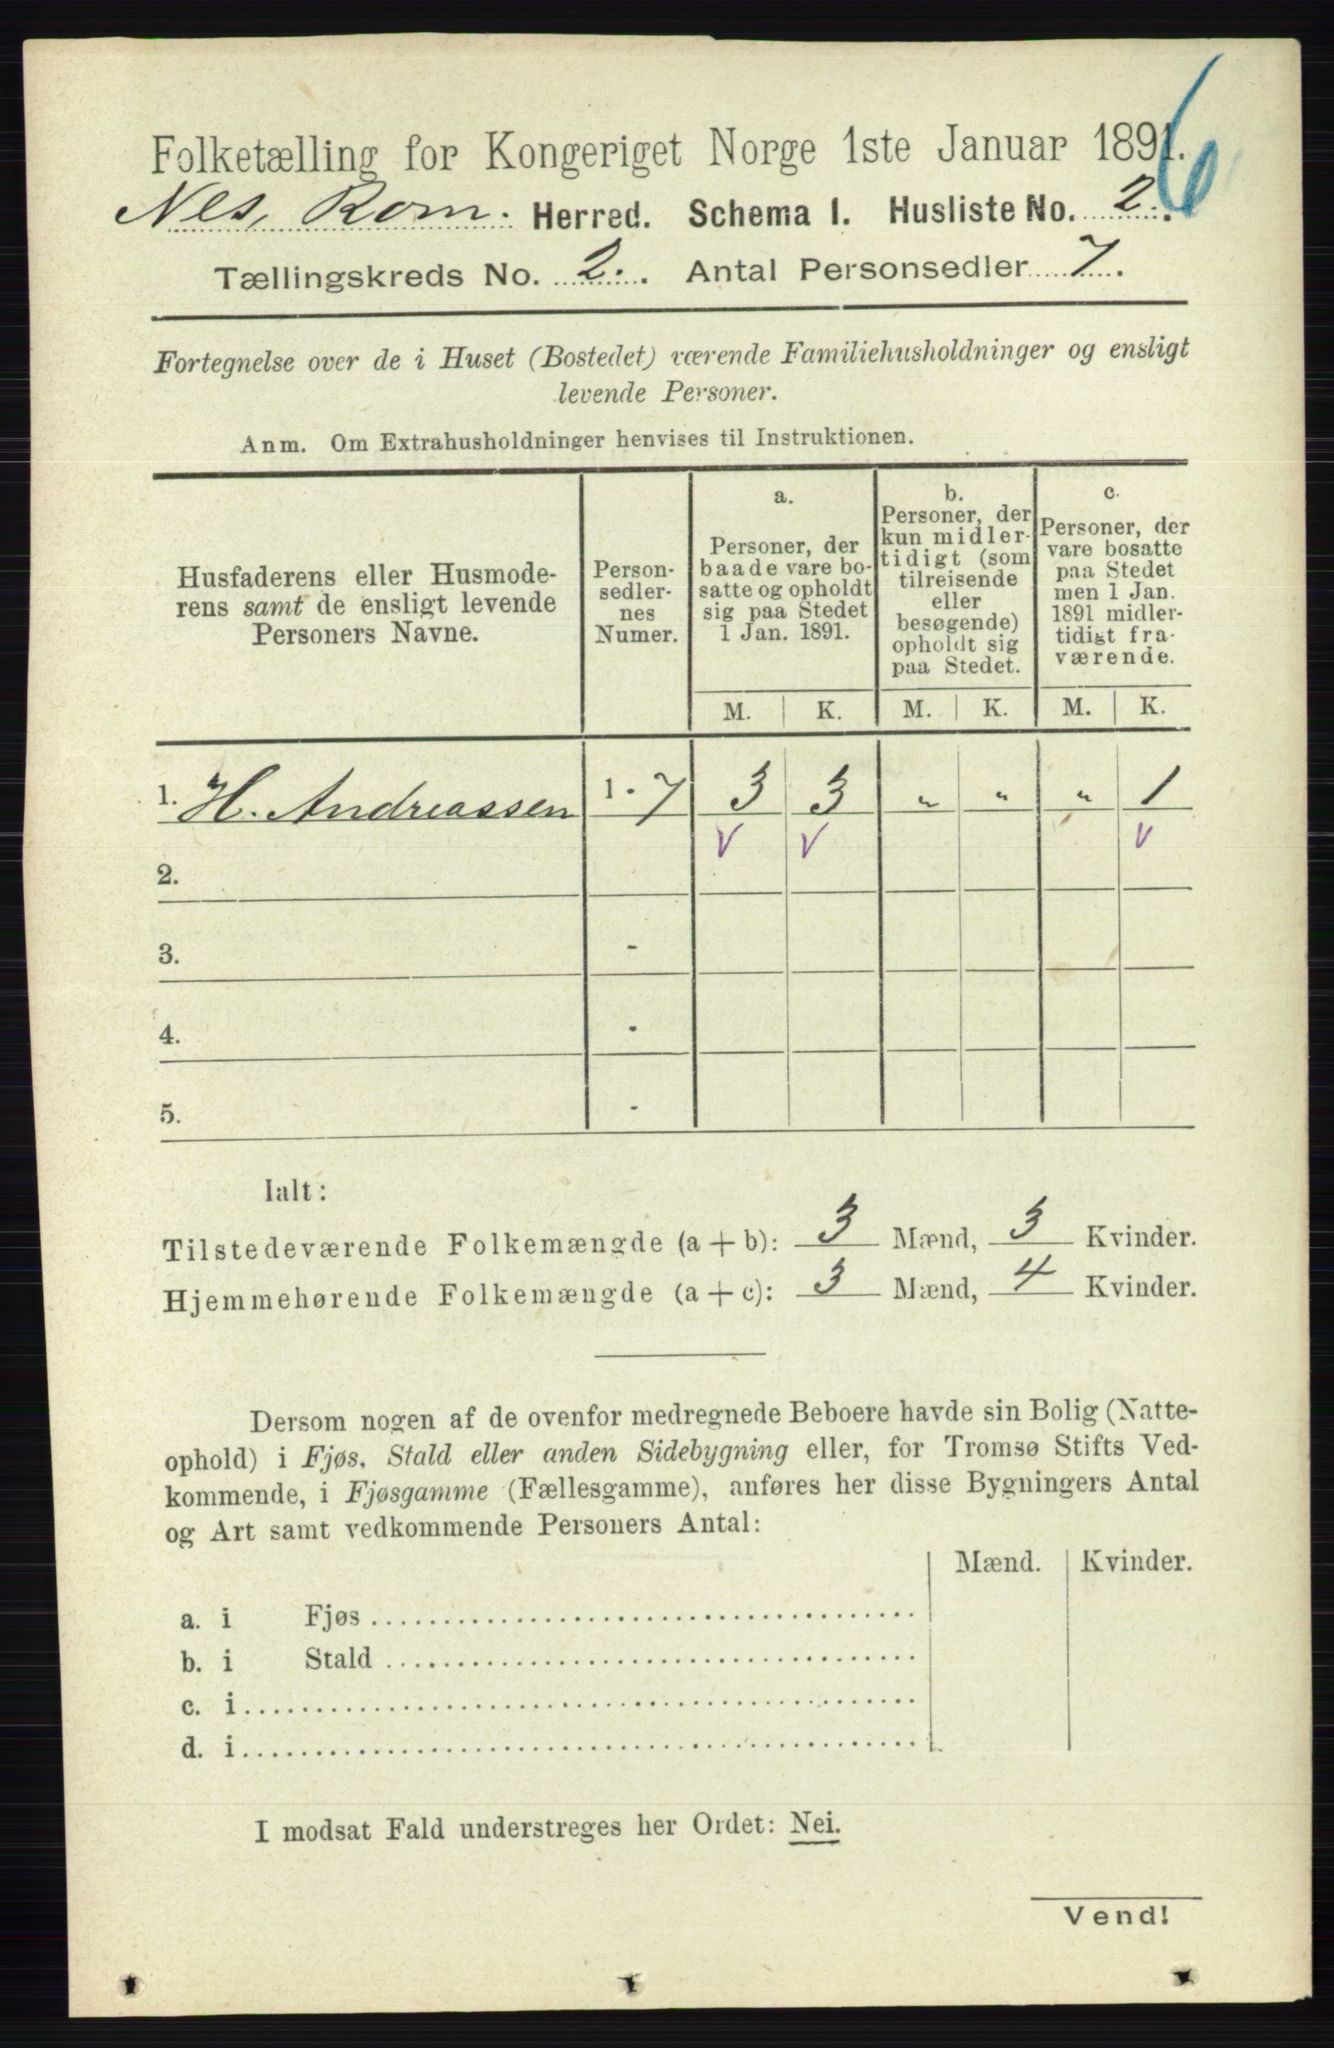 6
Folketælling for Kongeriget Norge 1ste Januar 1891.
Nes, Rom. Herred. Schema 1. Husliste No. 2.
Tællingskreds No. 2. Antal Personsedler 7.
Fortegnelse over de i Huset (Bostedet) værende Familiehusholdninger og ensligt
levende Personer.
Anm. Om Extrahusholdninger henvises til Instruktionen.
Husfaderens eller Husmode-
rens samt de ensligt levende
Personers Navne.
Person-
sedler-
nes
Numer.
a.
Personer, der
baade vare bo-
satte og opholdt
sig paa Stedet
1 Jan. 1891.
b.
Personer, der
kun midler-
tidigt (som
tilreisende
eller
besøgende)
opholdt sig
paa Stedet.
c.
Personer, der
vare bosatte
paa Stedet
men 1 Jan.
1891 midler-
tidigt fra-
værende.
M. K. M. K. M. K.
1. H. Andreassen 1-7 3 3 „ „ „ 1
v v v
2.
3. -
4. -
5. -
Ialt:
Tilstedeværende Folkemængde (a + b): 3 Mænd, 3 Kvinder.
Hjemmehørende Folkemængde (a + c): 3 Mænd, 4 Kvinder.
Dersom nogen af de ovenfor medregnede Beboere havde sin Bolig (Natte-
ophold) i Fjøs, Stald eller anden Sidebygning eller, for Tromsø Stifts Ved-
kommende, i Fjøsgamme (Fællesgamme), anføres her disse Bygningers Antal
og Art samt vedkommende Personers Antal:
Mænd. Kvinder.
a. i Fjøs
b. i Stald
c. i
d. i
I modsat Fald understreges her Ordet: Nei.
Vend!